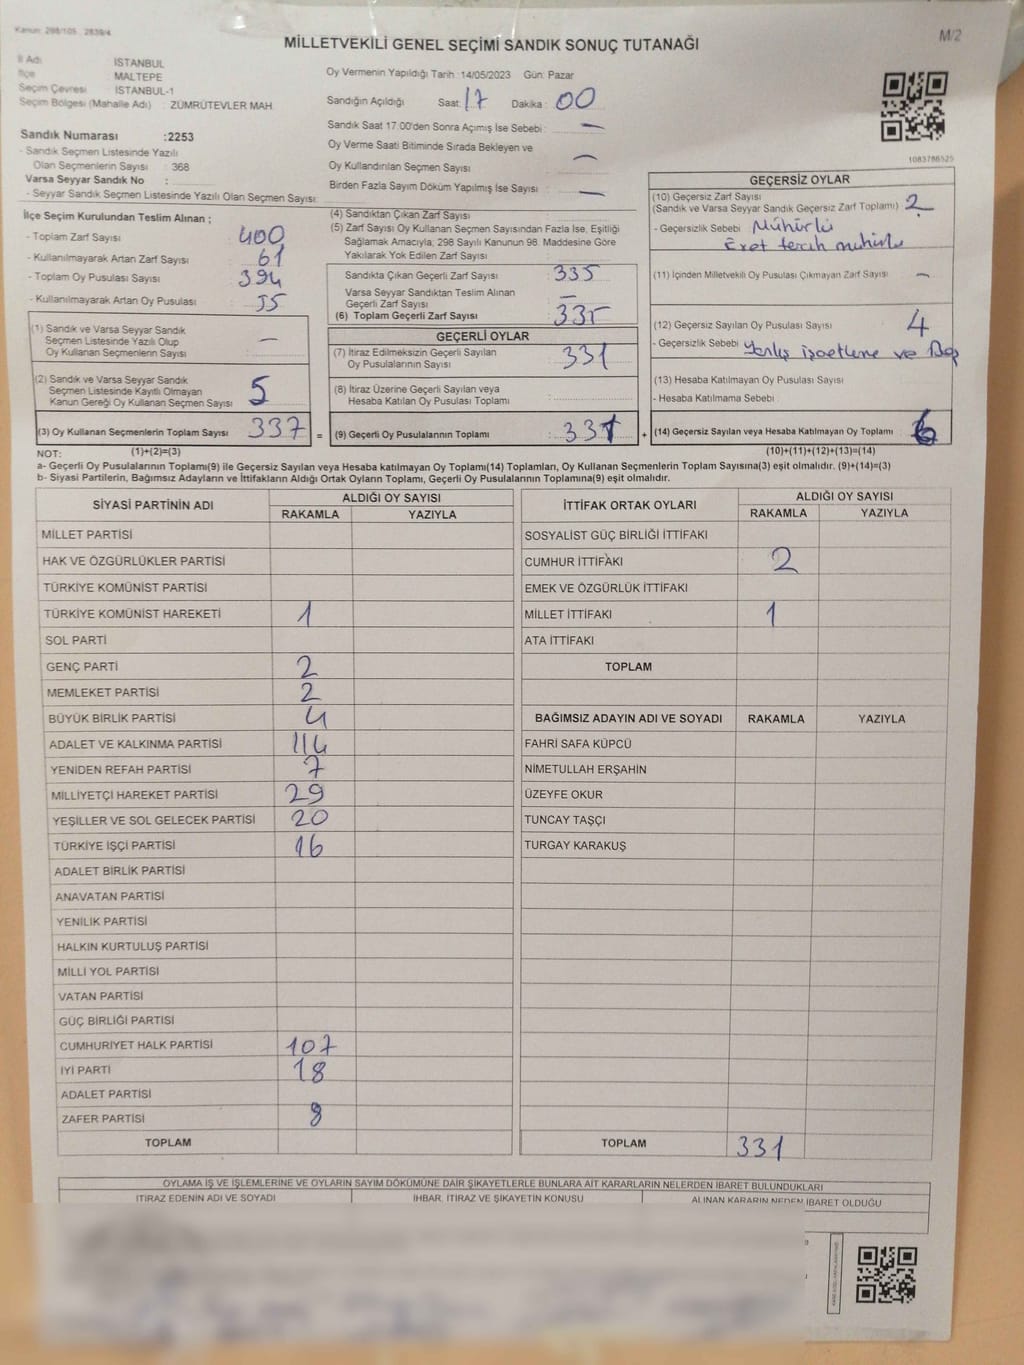 Kanun: 298/105 , 2839/4
M/2
MİLLETVEKİLİ GENEL SEÇİMİ SANDIK SONUÇ TUTANAĞI
İl Adı : İSTANBUL
İlçe : MALTEPE
Seçim Çevresi : İSTANBUL-1
Seçim Bölgesi (Mahalle Adı) : ZÜMRÜTEVLER MAH.
Sandık Numarası :2253
- Sandık Seçmen Listesinde Yazılı
Olan Seçmenlerin Sayısı : 368
Varsa Seyyar Sandık No :
- Seyyar Sandık Seçmen Listesinde Yazılı Olan Seçmen Sayısı:
Oy Vermenin Yapıldığı Tarih :14/05/2023 Gün: Pazar
Sandığın Açıldığı Saat: 17 Dakika : 00
Sandık Saat 17.00'den Sonra Açımış İse Sebebi : —
Oy Verme Saati Bitiminde Sırada Bekleyen ve
Oy Kullandırılan Seçmen Sayısı : —
Birden Fazla Sayım Döküm Yapılmış İse Sayısı : —
1083786525
İlçe Seçim Kurulundan Teslim Alınan ;
- Toplam Zarf Sayısı : 400
- Kullanılmayarak Artan Zarf Sayısı : 61
- Toplam Oy Pusulası Sayısı : 394
- Kullanılmayarak Artan Oy Pusulası : 55
(1) Sandık ve Varsa Seyyar Sandık
Seçmen Listesinde Yazılı Olup
Oy Kullanan Seçmenlerin Sayısı : —
(2) Sandık ve Varsa Seyyar Sandık
Seçmen Listesinde Kayıtlı Olmayan
Kanun Gereği Oy Kullanan Seçmen Sayısı : 5
(3) Oy Kullanan Seçmenlerin Toplam Sayısı : 337 =
(4) Sandıktan Çıkan Zarf Sayısı :
(5) Zarf Sayısı Oy Kullanan Seçmen Sayısından Fazla İse, Eşitliği
Sağlamak Amacıyla, 298 Sayılı Kanunun 98. Maddesine Göre
Yakılarak Yok Edilen Zarf Sayısı :
Sandıkta Çıkan Geçerli Zarf Sayısı : 335
Varsa Seyyar Sandıktan Teslim Alınan
Geçerli Zarf Sayısı : —
(6) Toplam Geçerli Zarf Sayısı : 335
GEÇERLİ OYLAR
(7) İtiraz Edilmeksizin Geçerli Sayılan
Oy Pusulalarının Sayısı : 331
(8) İtiraz Üzerine Geçerli Sayılan veya
Hesaba Katılan Oy Pusulası Toplamı :
(9) Geçerli Oy Pusulalarının Toplamı : 331 +
GEÇERSİZ OYLAR
(10) Geçersiz Zarf Sayısı
(Sandık ve Varsa Seyyar Sandık Geçersiz Zarf Toplamı) : 2
- Geçersizlik Sebebi : Mühürlü
Evet tercih mühürlü
(11) İçinden Milletvekili Oy Pusulası Çıkmayan Zarf Sayısı : —
(12) Geçersiz Sayılan Oy Pusulası Sayısı : 4
- Geçersizlik Sebebi : ve Boş
(13) Hesaba Katılmayan Oy Pusulası Sayısı :
- Hesaba Katılmama Sebebi :
(14) Geçersiz Sayılan veya Hesaba Katılmayan Oy Toplamı : 6
NOT: (1)+(2)=(3) (10)+(11)+(12)+(13)=(14)
a- Geçerli Oy Pusulalarının Toplamı(9) ile Geçersiz Sayılan veya Hesaba katılmayan Oy Toplamı(14) Toplamları, Oy Kullanan Seçmenlerin Toplam Sayısına(3) eşit olmalıdır. (9)+(14)=(3)
b- Siyasi Partilerin, Bağımsız Adayların ve İttifakların Aldığı Ortak Oyların Toplamı, Geçerli Oy Pusulalarının Toplamına(9) eşit olmalıdır.
SİYASİ PARTİNİN ADI ALDIĞI OY SAYISI
RAKAMLA YAZIYLA
MİLLET PARTİSİ
HAK VE ÖZGÜRLÜKLER PARTİSİ
TÜRKİYE KOMÜNİST PARTİSİ
TÜRKİYE KOMÜNİST HAREKETİ 1
SOL PARTİ
GENÇ PARTİ 2
MEMLEKET PARTİSİ 2
BÜYÜK BİRLİK PARTİSİ 4
ADALET VE KALKINMA PARTİSİ 114
YENİDEN REFAH PARTİSİ 7
MİLLİYETÇİ HAREKET PARTİSİ 29
YEŞİLLER VE SOL GELECEK PARTİSİ 20
TÜRKİYE İŞÇİ PARTİSİ 16
ADALET BİRLİK PARTİSİ
ANAVATAN PARTİSİ
YENİLİK PARTİSİ
HALKIN KURTULUŞ PARTİSİ
MİLLİ YOL PARTİSİ
VATAN PARTİSİ
GÜÇ BİRLİĞİ PARTİSİ
CUMHURİYET HALK PARTİSİ 107
İYİ PARTİ 18
ADALET PARTİSİ
ZAFER PARTİSİ 8
TOPLAM
İTTİFAK ORTAK OYLARI ALDIĞI OY SAYISI
RAKAMLA YAZIYLA
SOSYALİST GÜÇ BİRLİĞİ İTTİFAKI
CUMHUR İTTİFAKI 2
EMEK VE ÖZGÜRLÜK İTTİFAKI
MİLLET İTTİFAKI 1
ATA İTTİFAKI
TOPLAM
BAĞIMSIZ ADAYIN ADI VE SOYADI RAKAMLA YAZIYLA
FAHRİ SAFA KÜPCÜ
NİMETULLAH ERŞAHİN
ÜZEYFE OKUR
TUNCAY TAŞÇI
TURGAY KARAKUŞ
TOPLAM 331
OYLAMA İŞ VE İŞLEMLERİNE VE OYLARIN SAYIM DÖKÜMÜNE DAİR ŞİKAYETLERLE BUNLARA AİT KARARLARIN NELERDEN İBARET BULUNDUKLARI
İTİRAZ EDENİN ADI VE SOYADI İHBAR, İTİRAZ VE ŞİKAYETİN KONUSU ALINAN KARARIN NEDEN İBARET OLDUĞU